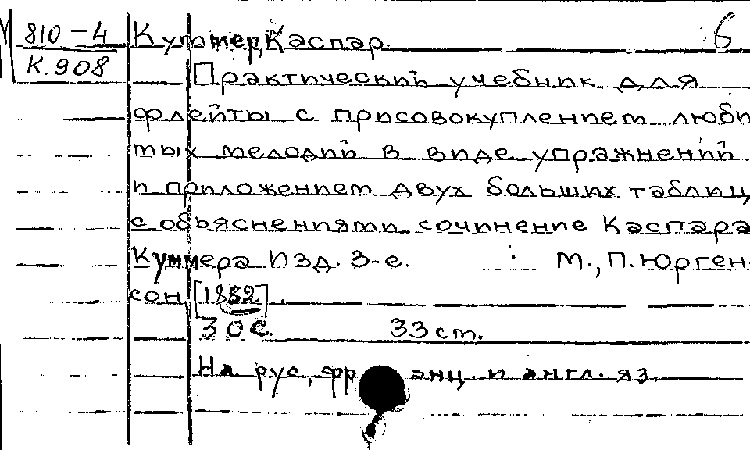 810-4
К.908
б
Куммер, Каспар.
Практический учебник для
флейты с присовокуплением люби
мых мелодий в виде упражнений
и приложением двух больших таблиц
с объяснениями. сочинение Каспара
Куммера Изд. 3-е. М., П. Юрген-
сон [1882].
30 с. 33 cm.
На рус, фр анц. и англ. яз.